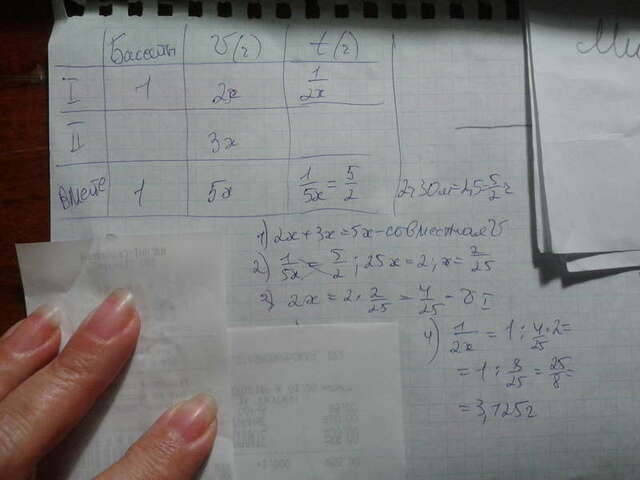 Бассейны V(г) t(г)
I 1 2x 1/2x
II 3x
вместе 1 5x 1/5x = 5/2 2ч30м=2,5=5/2 ч
1) 2x+3x=5x-совместная V
2) 1/5x = 5/2; 25x=2, x=2/25
3) 2x=2·2/25=4/25-V I
4) 1/2x = 1:4/25·2=
=1:8/25=25/8=
=3,125г
Ми